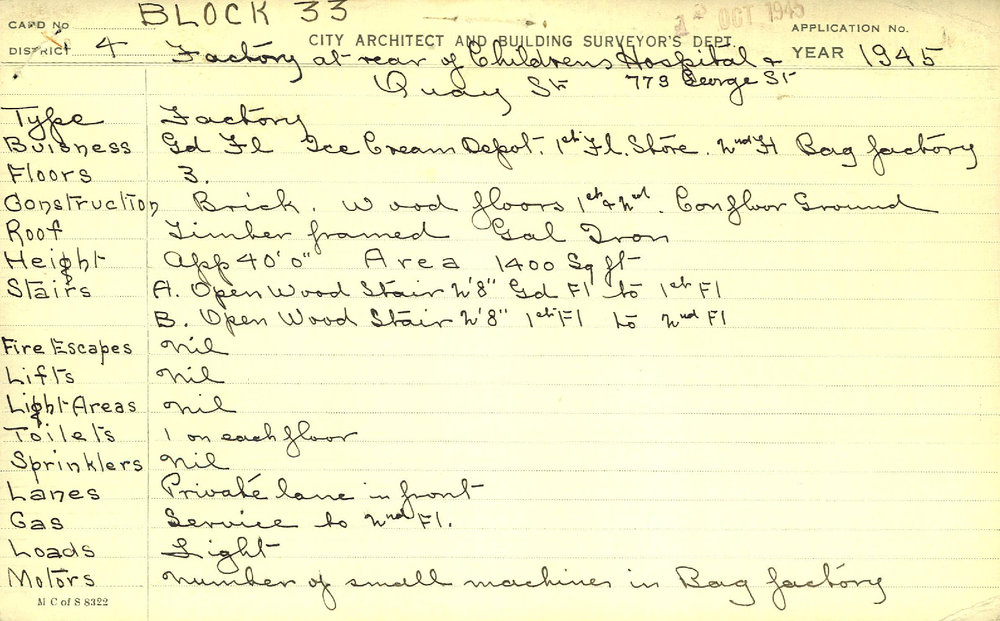 BLOCK 33
CARD No
OCT 1945
APPLICATION No.
DISTRICT 4
CITY ARCHITECT AND BUILDING SURVEYOR'S DEPT.
YEAR 1945
Factory at rear of Childrens Hospital &
Quay St 773 George St
Type Factory
Buisness Gd Fl Ice Cream Depot. 1st Fl. Store. 2nd Fl Bag factory
Floors 3.
Construction Brick. Wood floors 1st & 2nd. Con floor Ground
Roof Timber framed Gal Iron
Height App 40'0" Area 1400 Sq ft
Stairs A. Open Wood Stair 2'8" Gd Fl to 1st Fl
B. Open Wood Stair 2'8" 1st Fl to 2nd Fl
Fire Escapes Nil
Lifts Nil
Light Areas Nil
Toilets 1 on each floor
Sprinklers Nil
Lanes Private lane in front
Gas Service to 2nd Fl.
Loads Light
Motors Number of small machines in Bag factory
M C of S 8322